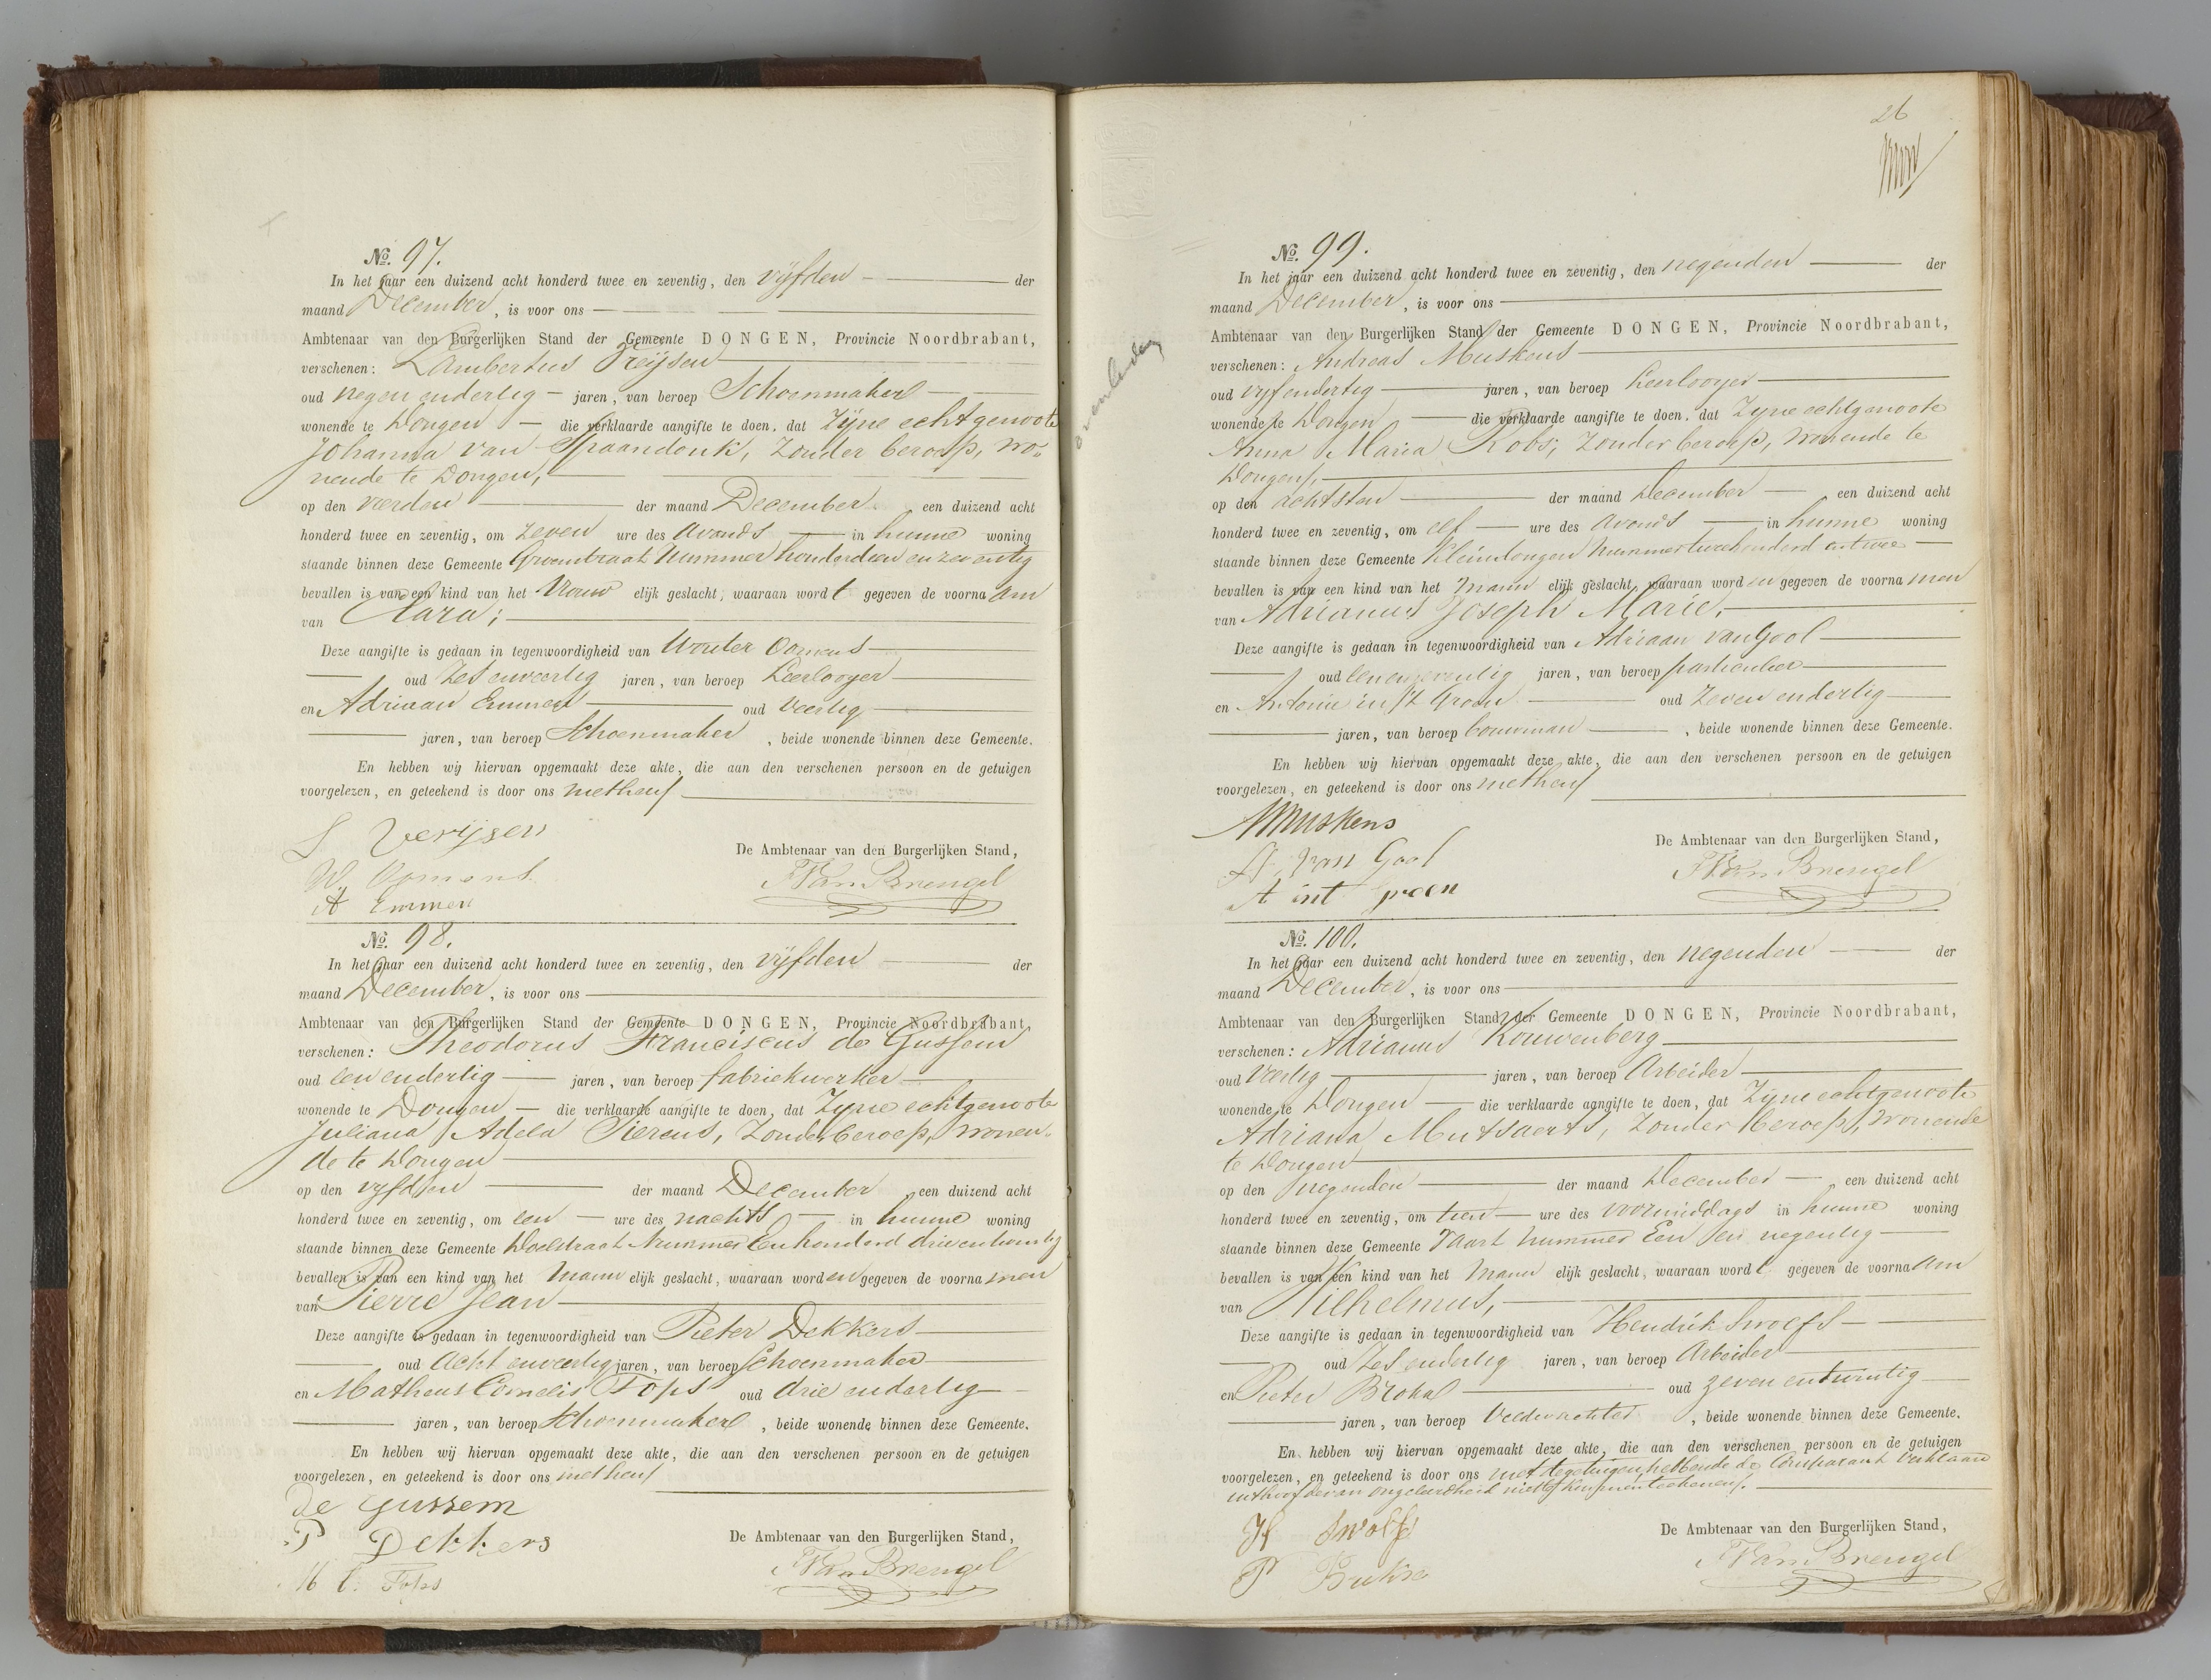 No. 97.
In het jaar een duizend acht honderd twee en zeventig, den vijfden der
maand December, is voor ons
Ambtenaar van den Burgerlijken Stand der Gemeente DONGEN, Provincie Noordbrabant,
verschenen: Lambertus
oud negen endertig jaren, van beroep Schoenmaker
wonende te Dongen die verklaarde aangifte te doen, dat Zijne echtgenoote
Johanna van Spaandonk, Zonder beroep, wo-
nende te Dongen,
op den vierden der maand December een duizend acht
honderd twee en zeventig, om zeven ure des avonds in hunne woning
staande binnen deze Gemeente Nummer
bevallen is van een kind van het Vrouw elijk geslacht, waaraan word t gegeven de voorna am
van Clara;
Deze aangifte is gedaan in tegenwoordigheid van Wouter Oomens
oud Zes enveertig jaren, van beroep Leerlooyer
en Adriaan Emmen oud veertig
jaren, van beroep Schoenmaker, beide wonende binnen deze Gemeente.
En hebben wij hiervan opgemaakt deze akte, die aan den verschenen persoon en de getuigen
voorgelezen, en geteekend is door ons methen
L Verijsen
W. Oomens
A Emmen
De Ambtenaar van den Burgerlijken Stand,
Van Brengel
No. 98.
In het jaar een duizend acht honderd twee en zeventig, den vijfden der
maand December, is voor ons
Ambtenaar van den Burgerlijken Stand der Gemeente DONGEN, Provincie Noordbrabant,
verschenen: Theodorus Franciscus de Gussem
oud een endertig jaren, van beroep fabriekwerker
wonende te Dongen die verklaarde aangifte te doen, dat Zijne echtgenoote
Juliana Adela Pierens, Zonder beroep, wonen-
de te Dongen
op den vijfden der maand December een duizend acht
honderd twee en zeventig, om een ure des nachts in hunne woning
staande binnen deze Gemeente Doelstraat Nummer Een honderd drie entwintig
bevallen is van een kind van het Mann elijk geslacht, waaraan word en gegeven de voorna men
van Pierre Jean
Deze aangifte is gedaan in tegenwoordigheid van Pieter Dekkers
oud Acht enveertig jaren, van beroep Schoenmaker
en Matheus Cornelis Tops oud drie endertig
jaren, van beroep Schoenmaker, beide wonende binnen deze Gemeente.
En hebben wij hiervan opgemaakt deze akte, die aan den verschenen persoon en de getuigen
voorgelezen, en geteekend is door ons methen
De Gussem
P Dekkers
M C. Tops
De Ambtenaar van den Burgerlijken Stand,
Van Brengel
26
No. 99.
In het jaar een duizend acht honderd twee en zeventig, den negenden der
maand December, is voor ons
Ambtenaar van den Burgerlijken Stand der Gemeente DONGEN, Provincie Noordbrabant,
verschenen: Andreas Muskens
oud vijfendertig jaren, van beroep Leerlooyer
wonende te Dongen die verklaarde aangifte te doen, dat Zijne echtgenoote
Anna Maria Kobs, Zonder beroep, wonende te
Dongen,
op den achtsten der maand December een duizend acht
honderd twee en zeventig, om elf ure des avonds in hunne woning
staande binnen deze Gemeente Kleindongen Nummer tweehonderd entwee
bevallen is van een kind van het Mann elijk geslacht, waaraan word en gegeven de voorna men
van Adrianus Joseph Marie,
Deze aangifte is gedaan in tegenwoordigheid van Adriaan van Gool
oud eenenzeventig jaren, van beroep particulier
en Antonie in 't Groen oud Zeven endertig
jaren, van beroep bouwman, beide wonende binnen deze Gemeente.
En hebben wij hiervan opgemaakt deze akte, die aan den verschenen persoon en de getuigen
voorgelezen, en geteekend is door ons methen
AMuskens
A. van Gool
A int groen
De Ambtenaar van den Burgerlijken Stand,
Van Brengel
No. 100.
In het jaar een duizend acht honderd twee en zeventig, den negenden der
maand December, is voor ons
Ambtenaar van den Burgerlijken Stand der Gemeente DONGEN, Provincie Noordbrabant,
verschenen: Adrianus Kouwenberg
oud Veertig jaren, van beroep Arbeider
wonende te Dongen die verklaarde aangifte te doen, dat Zijne echtgenoote
Adriana Mutsaerts, Zonder beroep, wonende
te Dongen
op den negenden der maand December een duizend acht
honderd twee en zeventig, om tien ure des voormiddags in hunne woning
staande binnen deze Gemeente Vaart Nummer Een en negentig
bevallen is van een kind van het Mann elijk geslacht, waaraan word t gegeven de voorna am
van Wilhelmus,
Deze aangifte is gedaan in tegenwoordigheid van Hendrik Swolfs
oud Zes endertig jaren, van beroep Arbeider
en Pieter oud zeven entwintig
jaren, van beroep Veldwachter, beide wonende binnen deze Gemeente.
En hebben wij hiervan opgemaakt deze akte, die aan den verschenen persoon en de getuigen
voorgelezen, en geteekend is door ons met de getuigen, hebbende de Comparant verklaard
uithoofde van ongeleerdheid niet te kunnen teekenen.
H Swolfs
P
De Ambtenaar van den Burgerlijken Stand,
Van Brengel